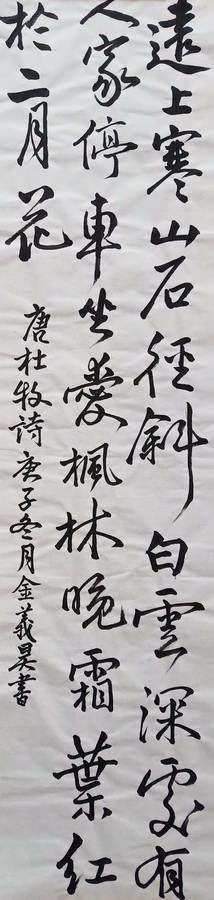 遠上寒山石徑斜白雲深處有
人家停車坐愛楓林晚霜葉红
於二月花
唐杜牧詩庚子冬月金義昊書